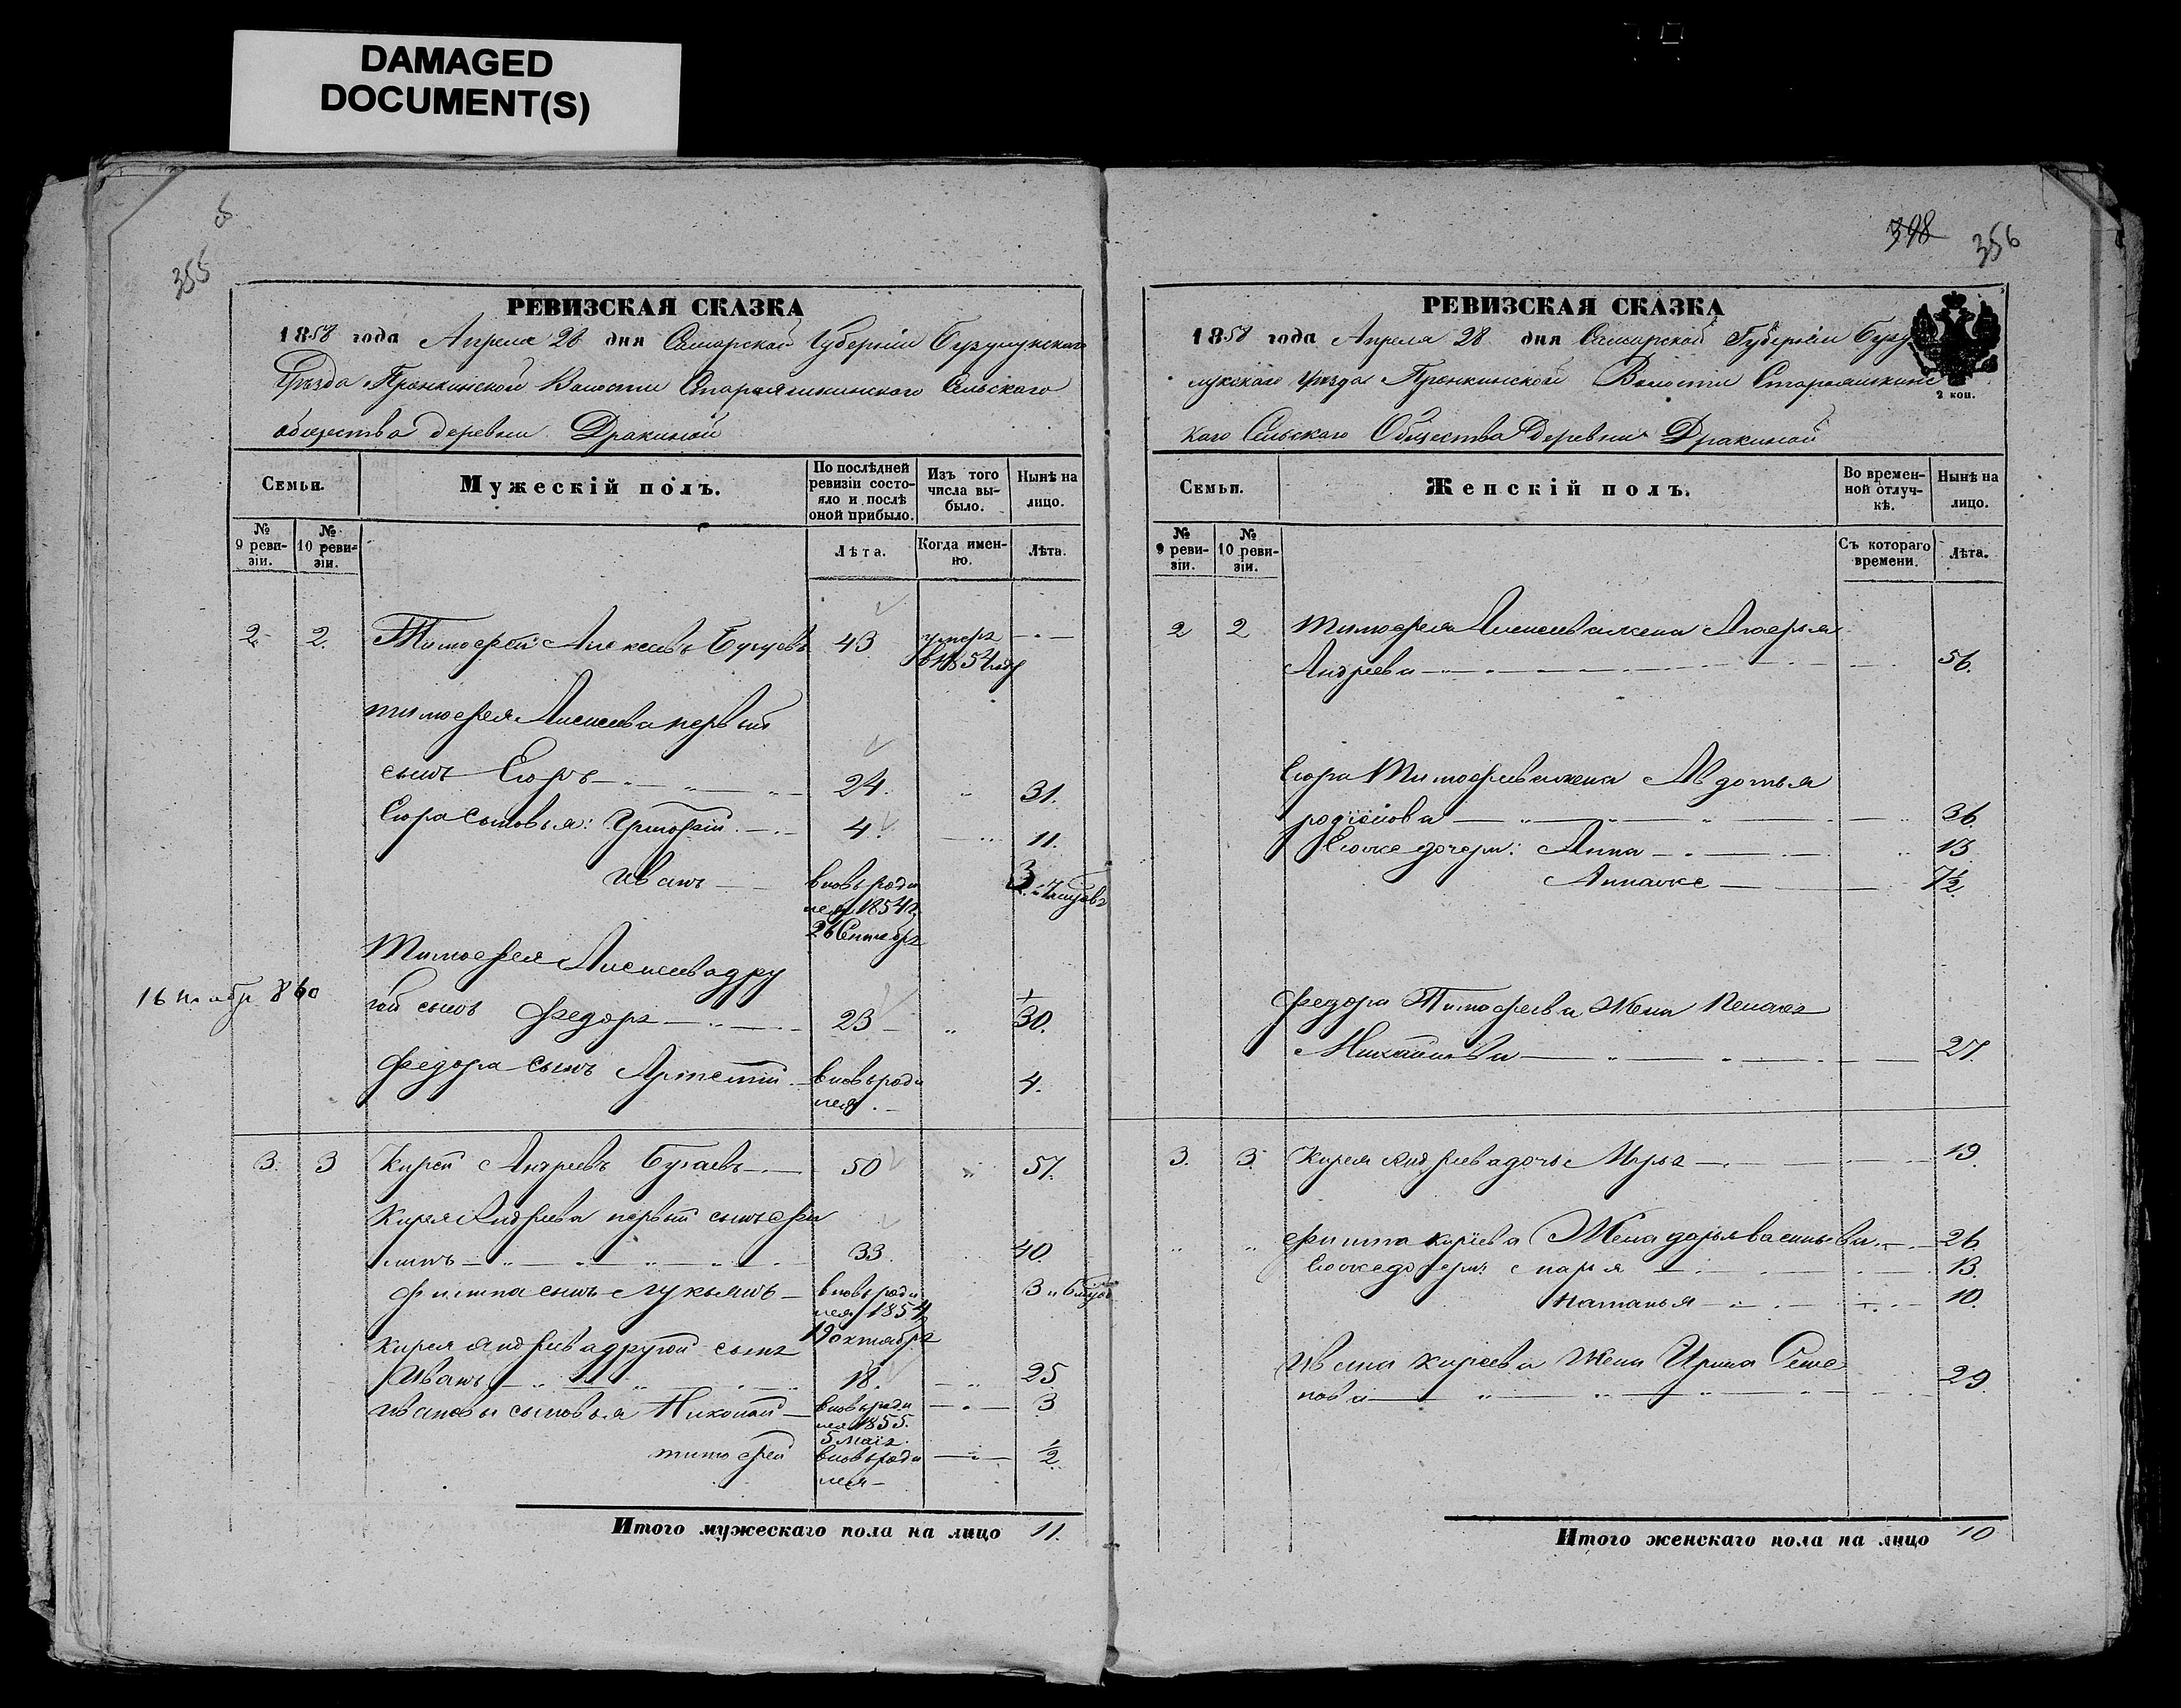 DAMAGED
DOCUMENT(S)
355
РЕВИЗСКАЯ СКАЗКА
1858 года Апреля 28 дня Самарской Губернiи Бузулукскаго
Уѣзда Пронкинской Волости Стараяшкинскаго Сельскаго
общества деревни Дракиной
Семьи.
Мужескiй полъ.
По послѣдней ревизiи состояло и послѣ оной прибыло.
Изъ того числа выбыло.
Нынѣ на лицо.
№ 9 ревизiи.
№ 10 ревизiи.
Лѣта.
Когда именно.
Лѣта.
2 2. Тимофей Алексѣевъ 43 умеръ
в 1854 году
тимофея Алексеева первый
сынъ Егоръ 24. 31.
Егора сыновья: Григорий 4. 11.
Иванъ вновь роди 3
лся 1854 г.
26 Сентября
Тимофея Алексеева дру
гой сынъ Федоръ 23 30.
16 860
Федора сынъ вновь роди 4.
лся
3. 3 Кирей Андреевъ Бугаевъ 50 57.
Кирея Андреева первый сынъ Фи
липъ 33. 40.
Филипа сынъ Лукьянъ вновь роди 3
лся 1854
19 октября
Кирея Андреева другой сынъ
Иванъ 18. 25
Ивановы сыновья Николай вновь роди 3
лся 1855.
5 мая
тимофей вновь роди 1/2
лся
Итого мужескаго пола на лицо 11.
398 356
РЕВИЗСКАЯ СКАЗКА
1858 года Апреля 28 дня Самарской Губернiи Бузу
лукскаго уѣзда Пронкинской Волости Стараяшкинс
2 коп.
каго Сельскаго Общества деревни Дракиной
Семьи.
Женскiй полъ.
Во временной отлучкѣ.
Нынѣ на лицо.
№ 9 ревизiи.
№ 10 ревизiи.
Съ котораго времени.
Лѣта.
2 2 Тимофея Алексеева жена
Андреева 56.
Егора Тимофеева жена Авдотья
родiонова 36.
Еноже дочери: Анна 13
7 1/2
Федора Тимофеева Жена
Михайлова 27.
3. 3. Кирея Андреева дочь 19.
Филипа кирѣева Жена дарья васильева 26.
Еноже дочери: марья 13.
наталья 10.
Ивана кирѣева жена Ирина Семе
нова 29.
Итого женскаго пола на лицо 10